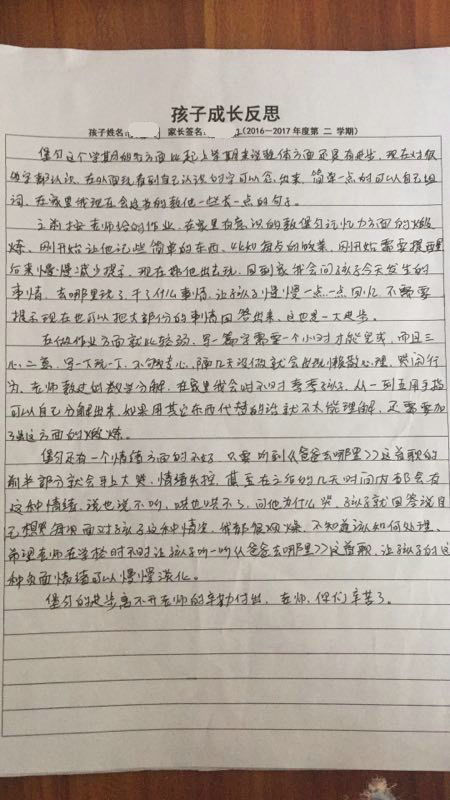 孩子成长反思
孩子姓名: 家长签名: (2016—2017年度第 二 学期)
堡匀这个学期的各方面比起上学期来说整体方面还是有进步，现在对很
多字都认识，在外面玩看到自己认识的字可以念出来，简单一点的可以自己组
词，在家里我现在会有意的教他一些长一点的句子。
主要按老师给的作业，在家里有意识的教堡匀记忆力方面的锻
炼，刚开始让他记些简单的东西，
后来慢慢减少提示，现在带他出去玩，回到家我会问孩子今天发生的
事情，去哪里玩了，干了什么事情，让孩子慢慢一点一点回忆，不需要
提示现在也可以把大部份的事情回答出来，这也是一大进步。
在做作业方面就比较弱，写一篇字需要一个小时才能完成，而且三
心二意，写一下玩一下，不够专心，隔几天没做就会出现懒散心理，哭闹行
为，老师教过的数学分解，在家里我会时不时考考孩子，从一到五用手指
可以自己分解出来，如果用其它东西代替的话就不太能理解，还需要加
强这方面的锻炼。
堡匀还有一个情绪方面的不好，只要听到《爸爸去哪里》这首歌的
前半部分就会马上大哭，情绪失控，甚至在之后的几天时间内都会有
这种情绪，说也说不听，哄也哄不了，问他为什么哭，孩子就回答说自
己想哭，每次面对孩子这种情况，我都很烦燥，不知道该如何处理，
希望老师在学校时不时让孩子听一听《爸爸去哪里》这首歌，让孩子的这
种负面情绪可以慢慢淡化。
堡匀的进步离不开老师的辛勤付出，老师，你们辛苦了。